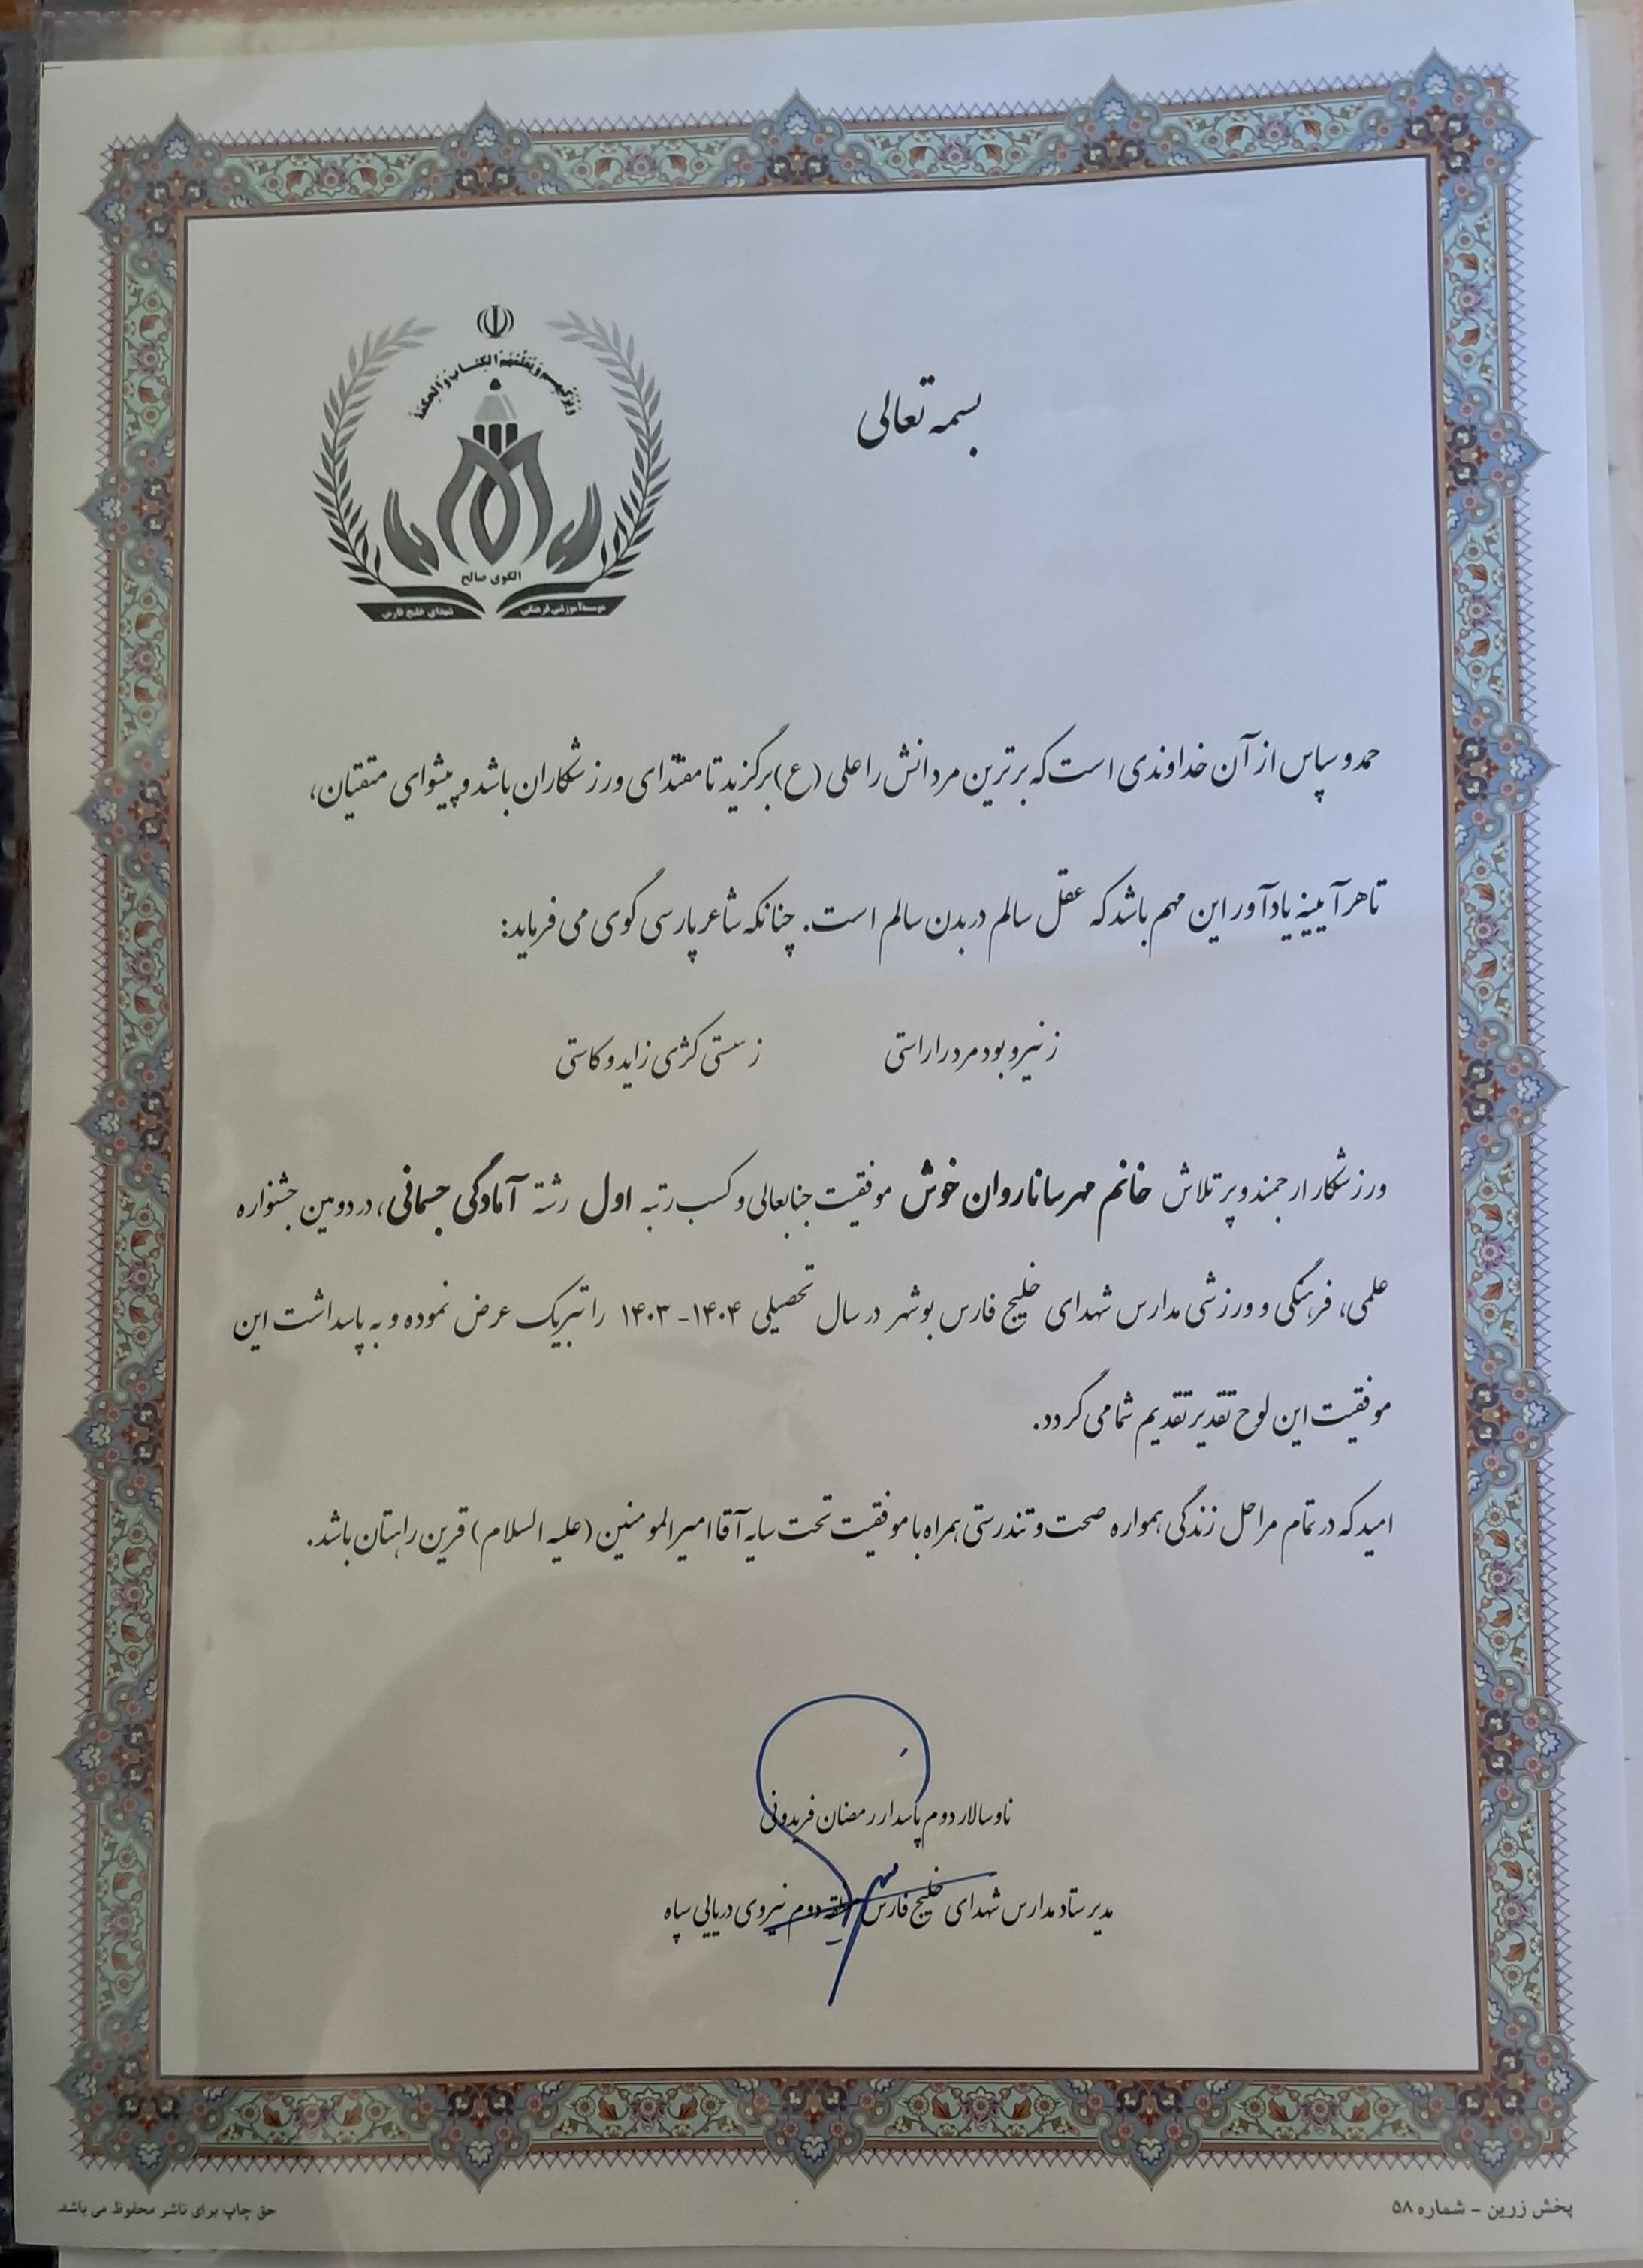 بسمه تعالی
وَيُزَكِّيهِمْ وَيُعَلِّمُهُمُ الْكِتَابَ وَالْحِكْمَةَ
الگوی صالح
موسسه آموزشی فرهنگی شهدای خلیج فارس
حمد و سپاس از آن خداوندی است که برترین مردانش را علی (ع) برگزید تا مقتدای ورزشکاران باشد و پیشوای متقیان،
تا هر آیینه یادآور این مهم باشد که عقل سالم در بدن سالم است. چنانکه شاعر پارسی گوی می فرماید:
ز نیرو بود مرد را راستی ز سستی کژی زاید و کاستی
ورزشکار ارجمند و پرتلاش خانم مهرسانا روان خوش موفقیت جنابعالی و کسب رتبه اول رشته آمادگی جسمانی، در دومین جشنواره
علمی، فرهنگی و ورزشی مدارس شهدای خلیج فارس بوشهر در سال تحصیلی ۱۴۰۴- ۱۴۰۳ را تبریک عرض نموده و به پاسداشت این
موفقیت این لوح تقدیر تقدیم شما می گردد.
امید که در تمام مراحل زندگی همواره صحت و تندرستی همراه با موفقیت تحت سایه آقا امیرالمومنین (علیه السلام) قرین راهتان باشد.
ناوسالار دوم پاسدار رمضان فریدونی
مدیر ستاد مدارس شهدای خلیج فارس منطقه دوم نیروی دریایی سپاه
پخش زرین - شماره ۵۸
حق چاپ برای ناشر محفوظ می باشد